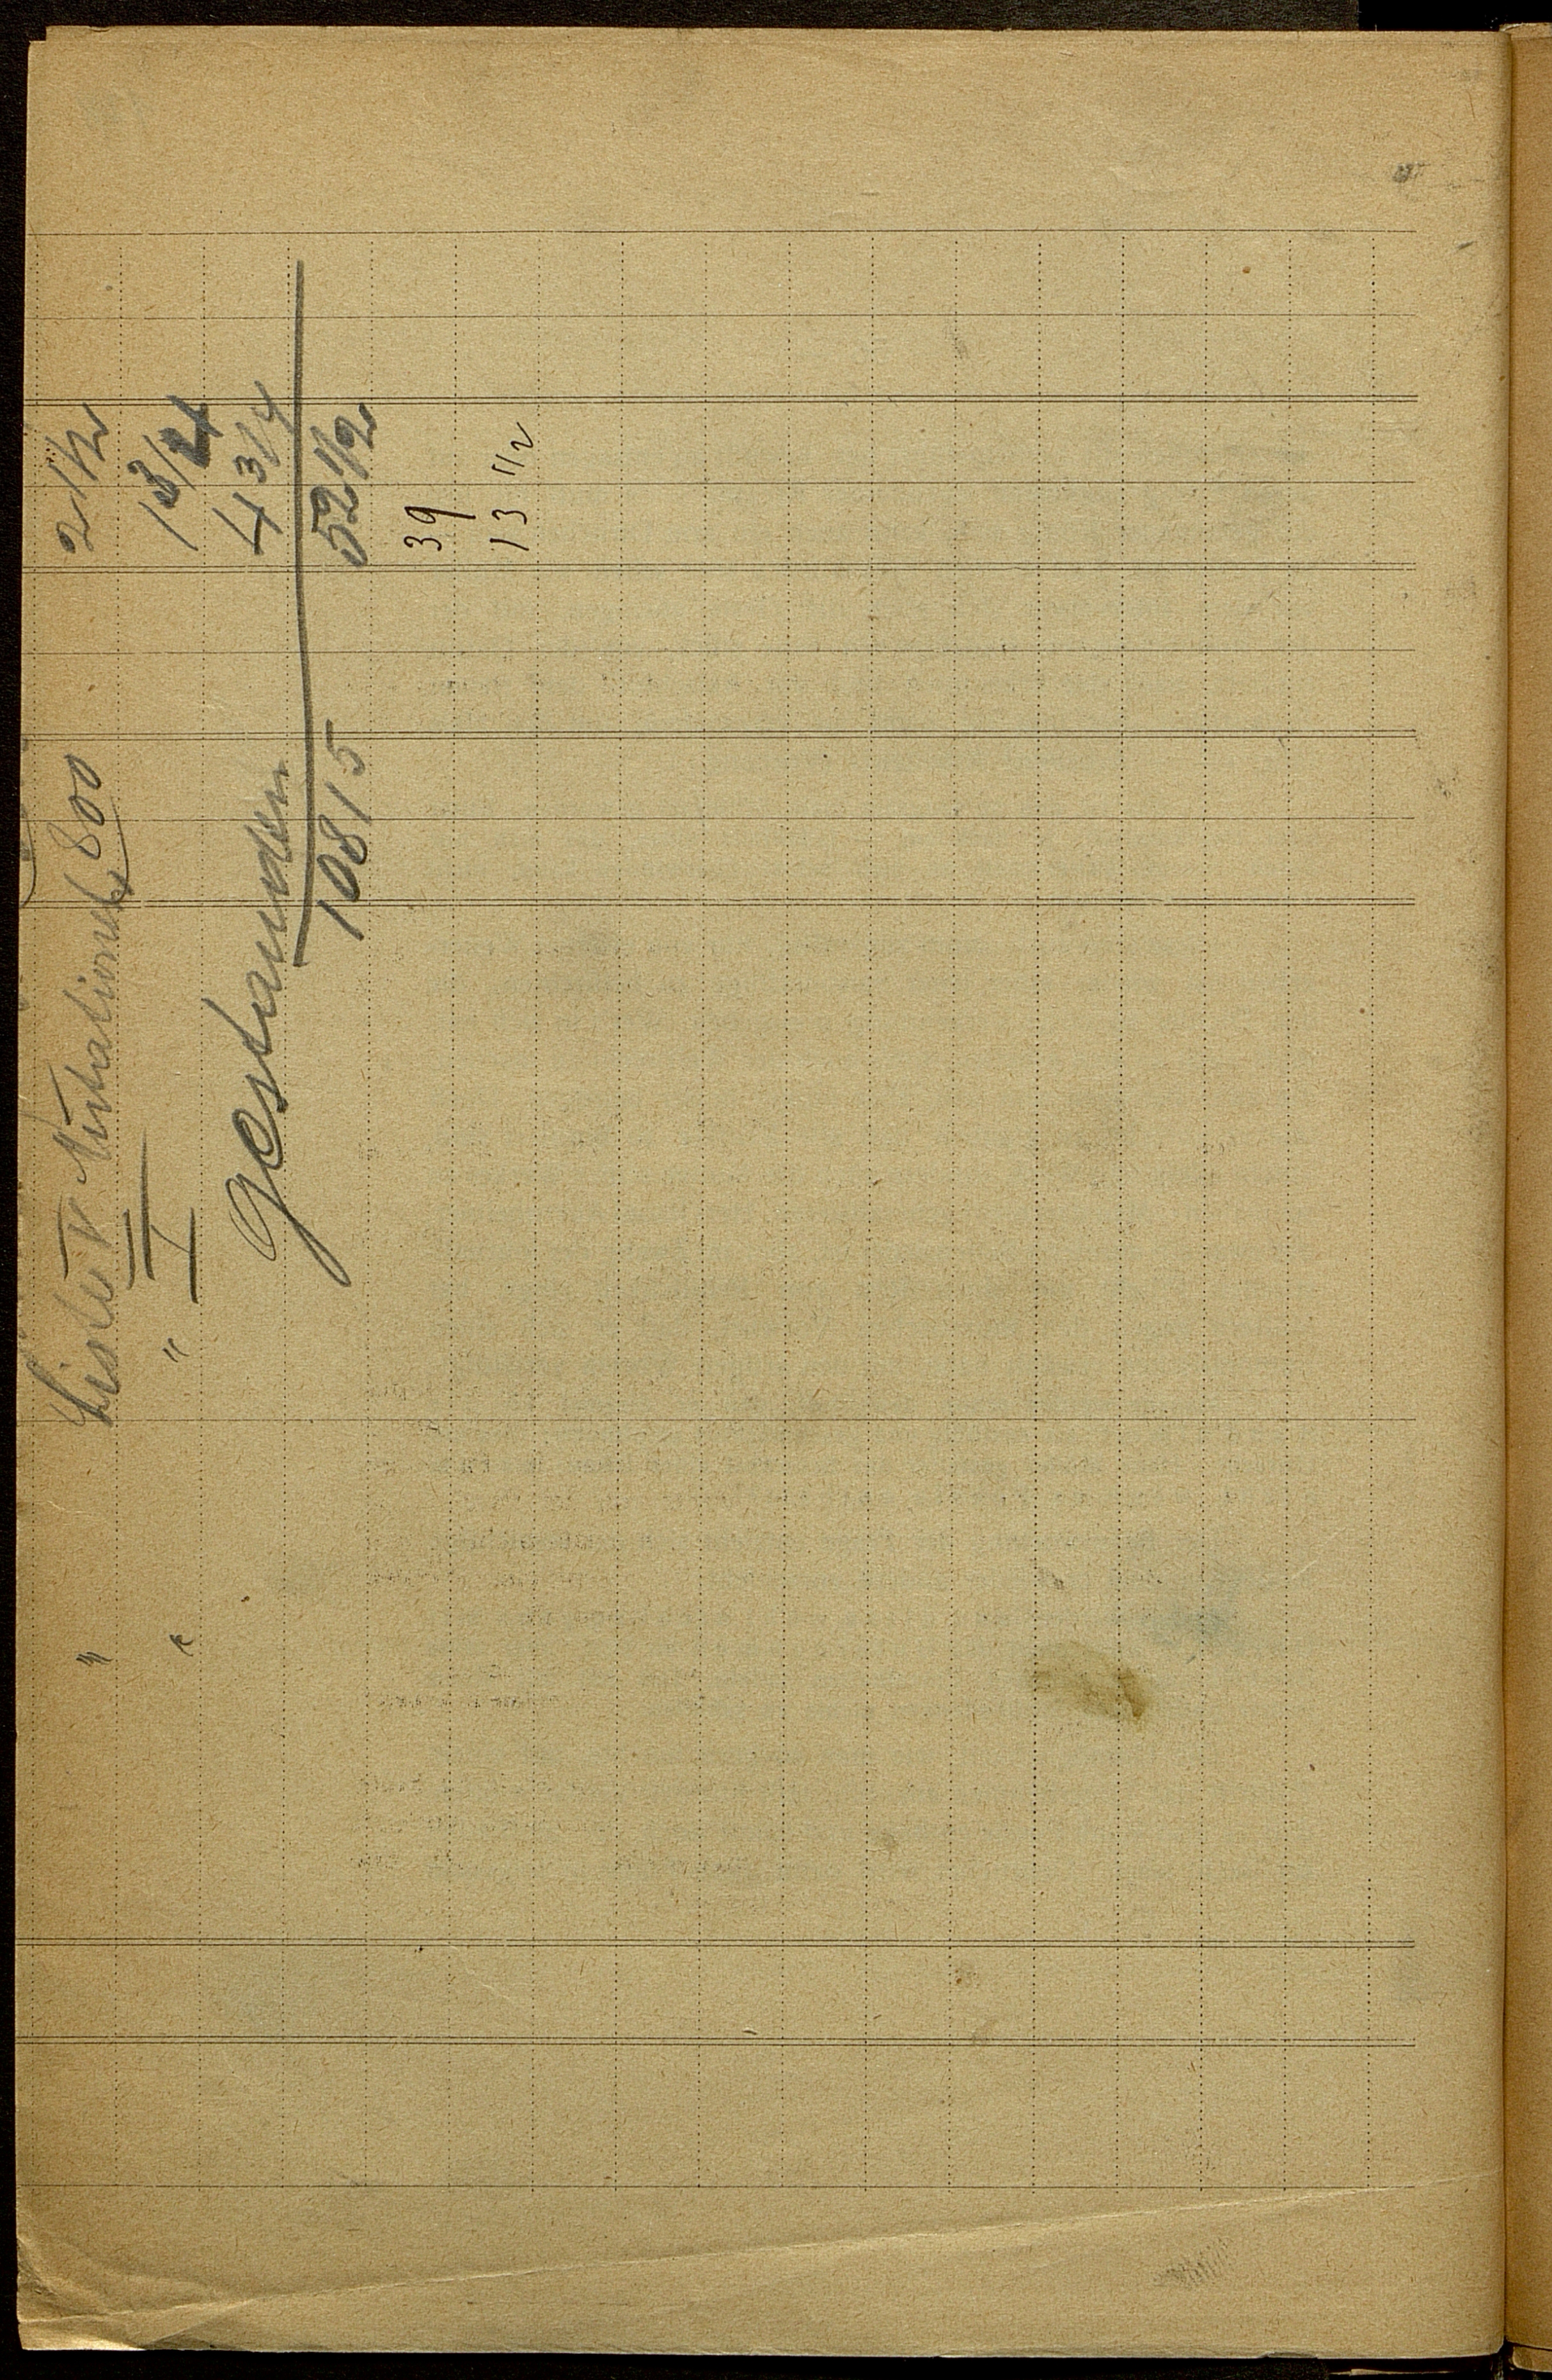 " Liste V 800 2 1/2
" " III 1 3/4
I 4 3/4
gestanden
10815 52 1/2
39
13 1/2